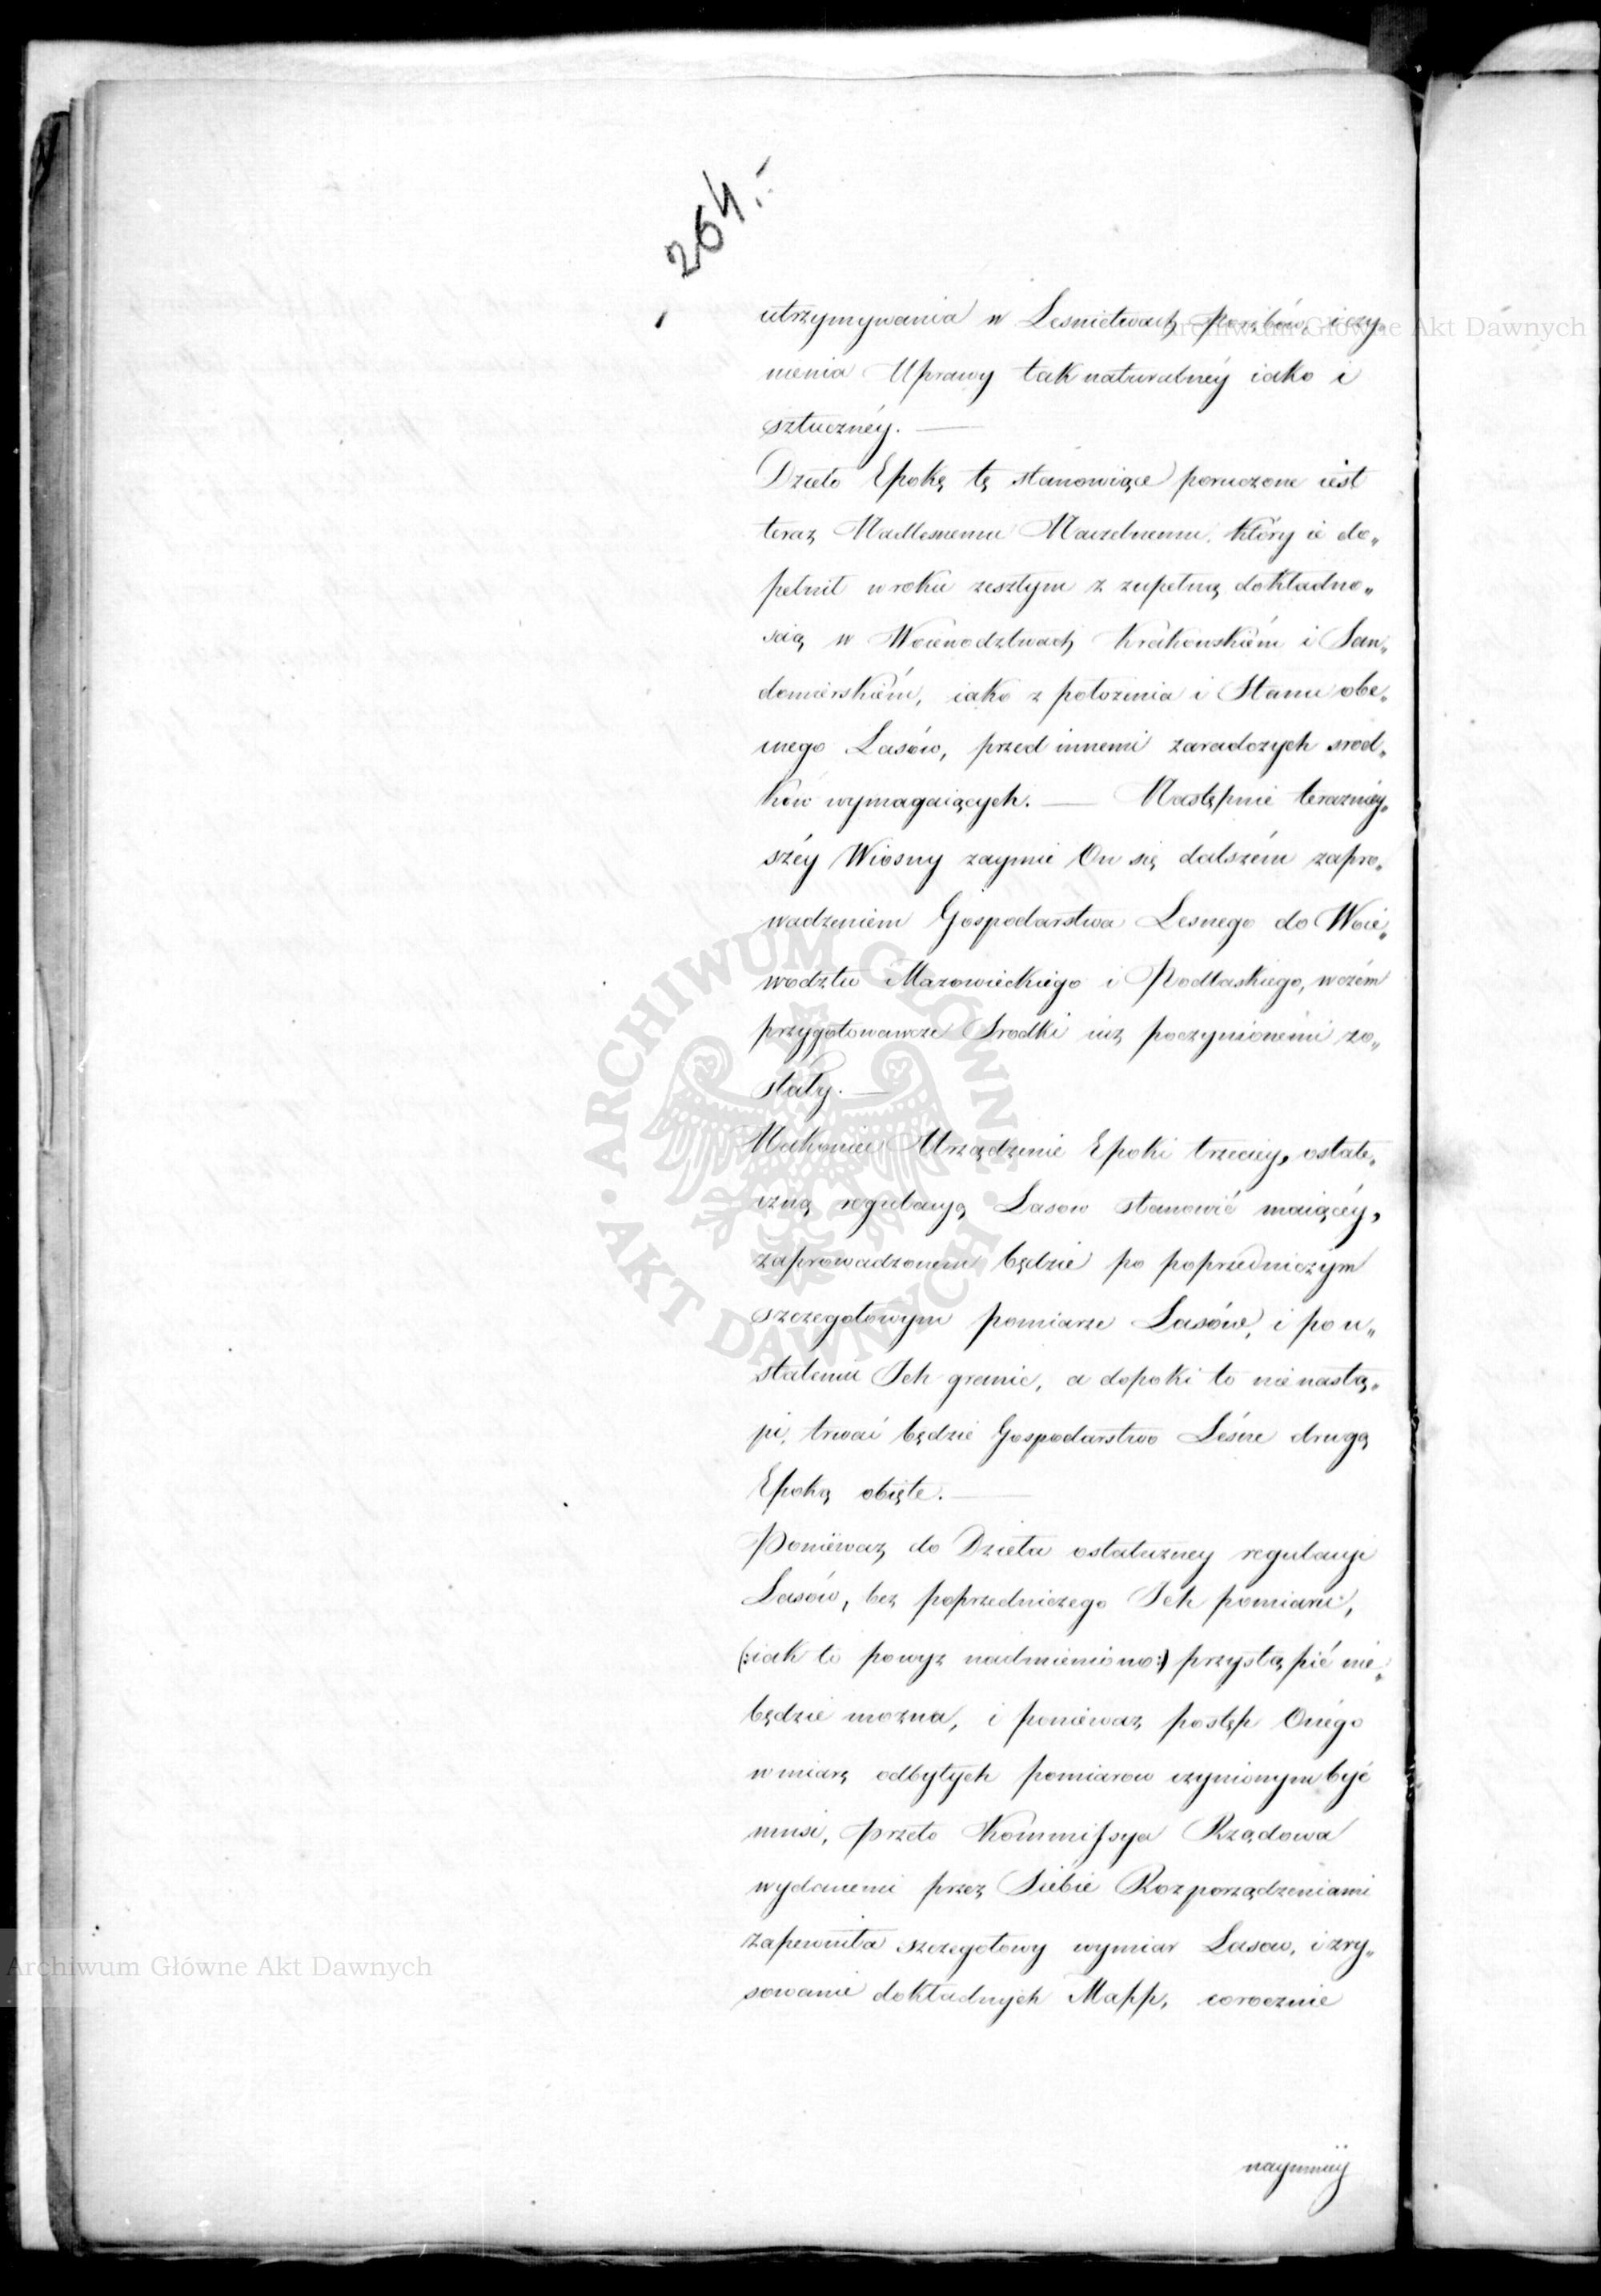 264.
utrzymywania w Lesnictwach porębów, i czy„
nienia Uprawy tak naturalnéy iako i
sztucznéy. —
Dzieło Epokę tę stanowiące poruczone iest
teraz Nadlesnemu Naczelnemu, który ie do„
pełnił w roku zeszłym z zupełną dokładno„
scią w Woiewodztwach Krakowskiém i San„
domierskiém, iako z położenia i Stanu obe„
cnego Lasów, przed innemi zaradczych srod„
ków wymagaiących. — Następnie teraznięy„
széy Wiosny zaymie On się dalszém zapro„
wadzeniem Gospodarstwa Lesnego do Woie„
wodztw Mazowieckiego i Podlaskiego, w czém
przygotowawcze Srodki iuż poczynionemi zo„
stały. —
Nakoniec Urządzenie Epoki trzeciey, ostate„
czną regulacyą Lasow stanowić maiącéy,
zaprowadzonem będzie po poprzedniczym
szczegołowym pomiarze Lasów, i po u„
staleniu Ich granic, a dopoki to nie nastą„
pi, trwać będzie Gospodarstwo Leśne drugą
Epoką obięte. —
Ponieważ do Dzieła ostateczney regulacyi
Lasów, bez poprzedniczego Ich pomiaru,
(:iak to powyz nadmieniono:) przystąpić nie„
będzie mozna, i ponieważ postęp Onégo
w miarę odbytych pomiarow czynionym być
musi, przeto Kommissya Rządowa
wydanemi przez Siebie Rozporządzeniami
zapewniła szczegołowy wymiar Lasow, i zry„
sowanie dokładnych Mapp, corocznie
naymniéy
Archiwum Główne Akt Dawnych
Archiwum Główne Akt Dawnych
ARCHIWUM GŁÓWNE · AKT DAWNYCH ·